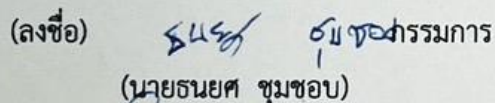 (ลงชื่อ) ธนยศ ชุมชอบ กรรมการ
(นายธนยศ ชุมชอบ)